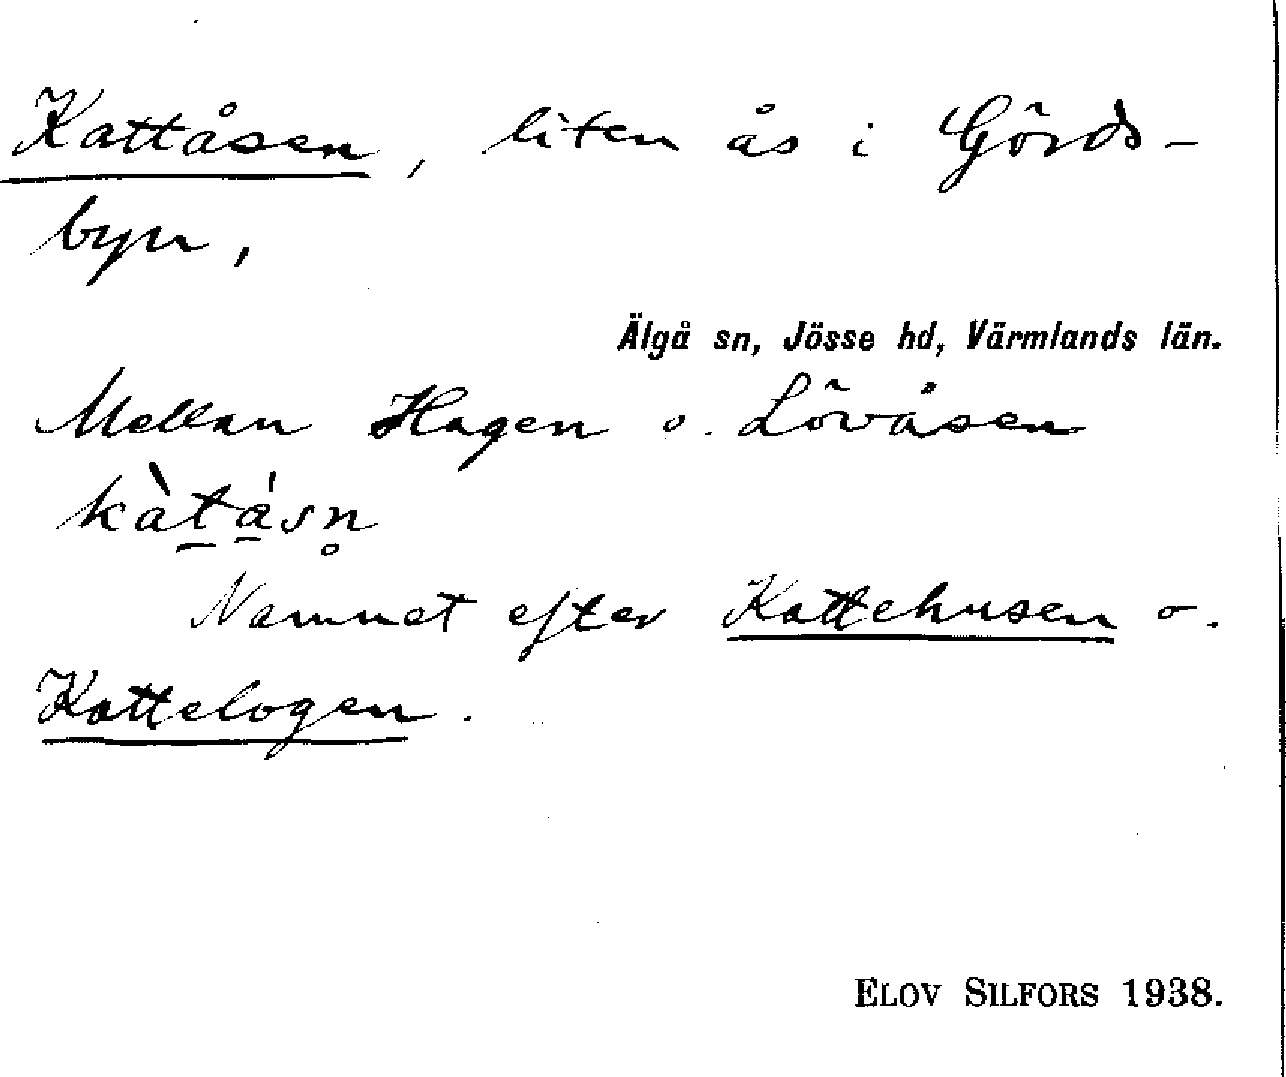 Kattåsen, liten ås i Görds-
byn,
Älgå sn, Jösse hd, Värmlands län.
Mellan Hagen o. Lövåsen
kàt̠á̠sn̥
Namnet efter Kattehusen o.
Kattelogen.
ELOV SILFORS 1938.